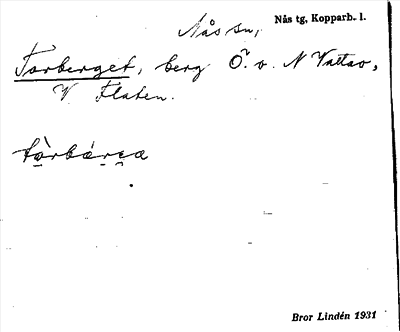 Nås sn,
Nås tg, Kopparb. l.
Torberget, berg Ö. o. N Vallao,
V Flaten.
tòrbárea
Bror Lindén 1931